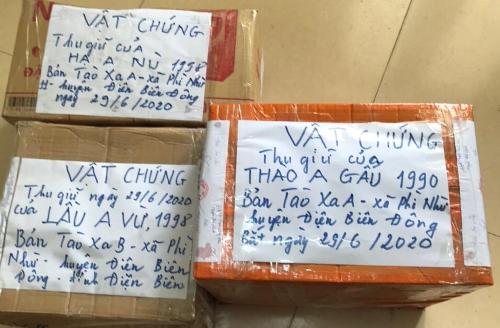 VẬT CHỨNG
Thu giữ của
HẠ A NỦ 1998
Bản Tào Xa A - xã Phì Nhừ
H - huyện Điện Biên Đông
ngày 29/6/2020
VẬT CHỨNG
Thu giữ ngày 29/6/2020
của LẦU A VƯ, 1998
Bản Tào Xa B - xã Phì
Nhừ - huyện Điện Biên
Đông - tỉnh Điện Biên
VẬT CHỨNG
Thu giữ của
THAO A GẤU 1990
Bản Tào Xa A - xã Phì Nhừ
huyện Điện Biên Đông
Bắt ngày 29/6/2020